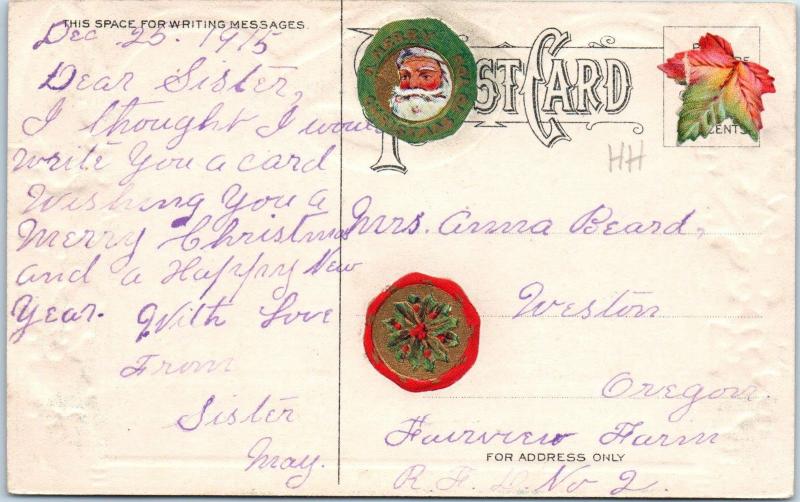 THIS SPACE FOR WRITING MESSAGES
Dec. 25. 1915
Dear Sister,
I thought I would
write You a card
Wishing You a
Merry Christmas
and a Happy New
Year. With Love
From
Sister
May.
MERRY
CHRISTMAS
POST CARD
CENTS
HH
Mrs. Anna Beard,
Weston
Oregon.
Fairview Farm
FOR ADDRESS ONLY
R. F. D. No 2.